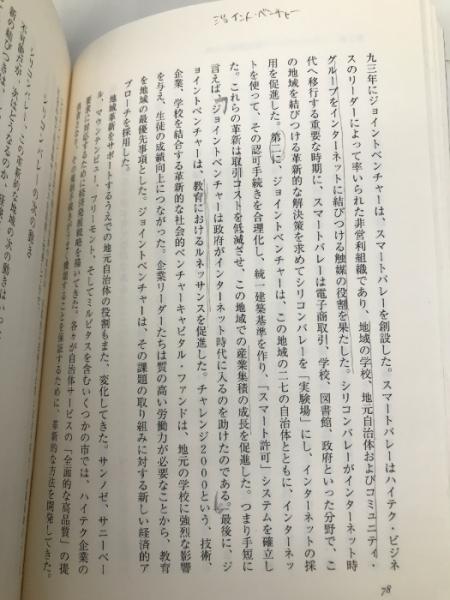 ジョイント・ベンチャー
九三年にジョイントベンチャーは、スマートバレーを創設した。スマートバレーはハイテク・ビジネ
スのリーダーによって率いられた非営利組織であり、地域の学校、地元自治体およびコミュニティ・
グループをインターネットに結びつける触媒の役割を果たした。シリコンバレーがインターネット時
代へ移行する重要な時期に、スマートバレーは電子商取引、学校、図書館、政府といった分野で、こ
の地域を結びつける革新的な解決策を求めてシリコンバレーを「実験場」にし、インターネットの採
用を促進した。第二に、ジョイントベンチャーは、この地域の二七の自治体とともに、インターネッ
トを使って、その認可手続きを合理化し、統一建築基準を作り、「スマート許可」システムを確立し
た。これらの革新は取引コストを低減させ、この地域での産業集積の成長を促進した。つまり手短に
言えば、ジョイントベンチャーは政府がインターネット時代に入るのを助けたのである。最後に、ジ
ョイントベンチャーは、教育におけるルネッサンスを促進した。チャレンジ2000という、技術、
企業、学校を結合する革新的な社会的ベンチャーキャピタル・ファンドは、地元の学校に強烈な影響
を与え、生徒の成績向上につながった。企業リーダーたちは質の高い労働力が必要なことから、教育
を地域の最優先事項とした。ジョイントベンチャーは、その課題の取り組みに対する新しい経済的ア
プローチを採用した。
地域革新をサポートするうえでの地元自治体の役割もまた、変化してきた。サンノゼ、サニーベー
ル、マウンテンビュー、フリーモント、そしてミルピタスを含むいくつかの市では、ハイテク企業の
要求に対応するために経済発展戦略を描いてきた。各々が自治体サービスの「全面的な高品質」の提
ために、革新的な方法を開発してきた。
シリコンバレー、次の動き
78